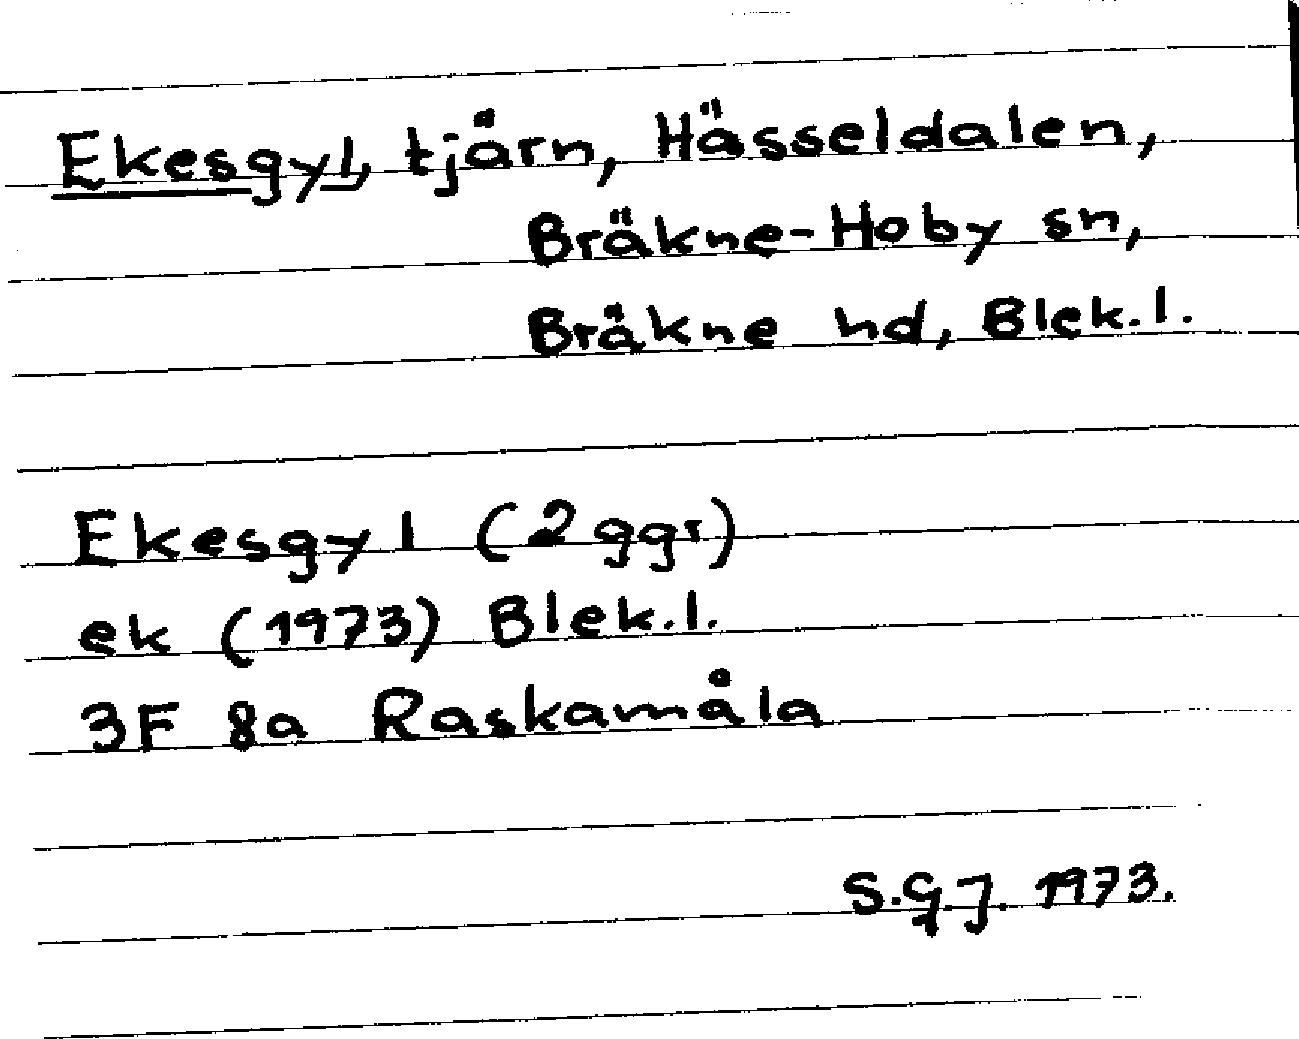 Ekesgyl, tjärn, Hässeldalen,
Bräkne-Hoby sn,
Bräkne hd, Blek.l.
Ekesgyl (2 ggr)
ek (1973) Blek.l.
3F 8a Raskamåla
S.G.J. 1973.